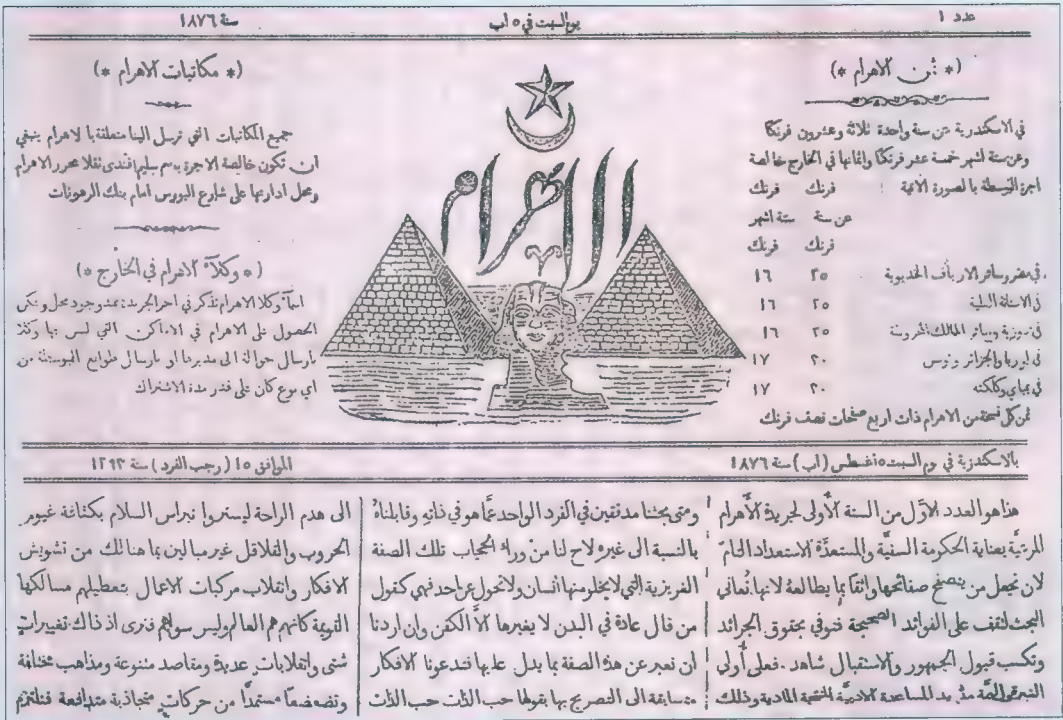 عدد ١
يوم السبت في ٥ اب
سنة ١٨٧٦
(* ثمن الاهرام *)
في الاسكندرية عن سنة واحدة ثلاثة وعشرون فرنكا
وعن ستة اشهر خمسة عشر فرنكا واثمانها في الخارج خالصة
اجرة البوسطة بالصورة الاتية : فرنك فرنك
عن سنة ستة اشهر
فرنك فرنك
في مصر وسائر الارياف الخديوية ٢٥ ١٦
في الاستانة العلية ٢٥ ١٦
في سورية وسائر الممالك المحروسة ٢٥ ١٦
في اوربا والجزائر وتونس ٣٠ ١٧
في بمباي وكلكته ٣٠ ١٧
ثمن كل نسخة من الاهرام ذات اربع صفحات نصف فرنك
الاهرام
(* مكاتبات الاهرام *)
جميع المكاتبات التي ترسل الينا متعلقة بالاهرام ينبغي
ان تكون خالصة الاجرة باسم سليم افندي تقلا محرر الاهرام
ومحل ادارتها على شارع البورس امام بنك الرهونات
(* وكلآء الاهرام في الخارج *)
اسمآء وكلا الاهرام تذكر في اخر الجريدة عند وجود محل ويمكن
الحصول على الاهرام في الاماكن التي ليس بها وكلا
بارسال حوالة الى مديرنا او بارسال طوابع البوسطة من
اي نوع كان على قدر مدة الاشتراك
بالاسكندرية في يوم السبت ٥ اغسطس (اب) سنة ١٨٧٦
الموافق ١٥ (رجب الفرد) سنة ١٢٩٣
هذا هو العدد الاول من السنة الأولى لجريدة الأهرام
المرتبة بعناية الحكومة السنية والمستعدة الاستعداد التام
لان تجعل من يتصفح صفائحها واثقا بما يطالعه لانها تعاني
البحث لتقف على الفوائد الصحيحة فتوفي بحقوق الجرائد
وتكسب قبول الجمهور والاستقبال شاهد . فعلى أولي
مد يد المساعدة الادبية المادية وذلك
ومتى بحثنا مدققين في الفرد الواحد عمّا هو في ذاته وقابلناهُ
بالنسبة الى غيره لاح لنا من وراء الحجاب تلك الصفة
الغريزية التي لا يخلو منها انسان ولا تحول عن احد فهي كقول
من قال عادة في البدن لا يغيرها الاّ الكفن وان اردنا
ان نعبر عن هذه الصفة بما يدل عليها فتدعونا الافكار
متسابقة الى التصريح بها بقولها حب الذات حب الذات
الى هدم الراحة ليستروا نبراس السلام بكثافة غيوم
الحروب والقلاقل غير مبالين بما هنالك من تشويش
الافكار وانقلاب مركبات الاعمال بتعطيلهم مسالكها
القويمة كانهم هم العالم وليس سواهم فنرى اذ ذاك تغييرات
شتى وانقلابات عديدة ومقاصد متنوعة ومذاهب مختلفة
مستمدًا من حركات متجاذبة متدافعة فتلتزم